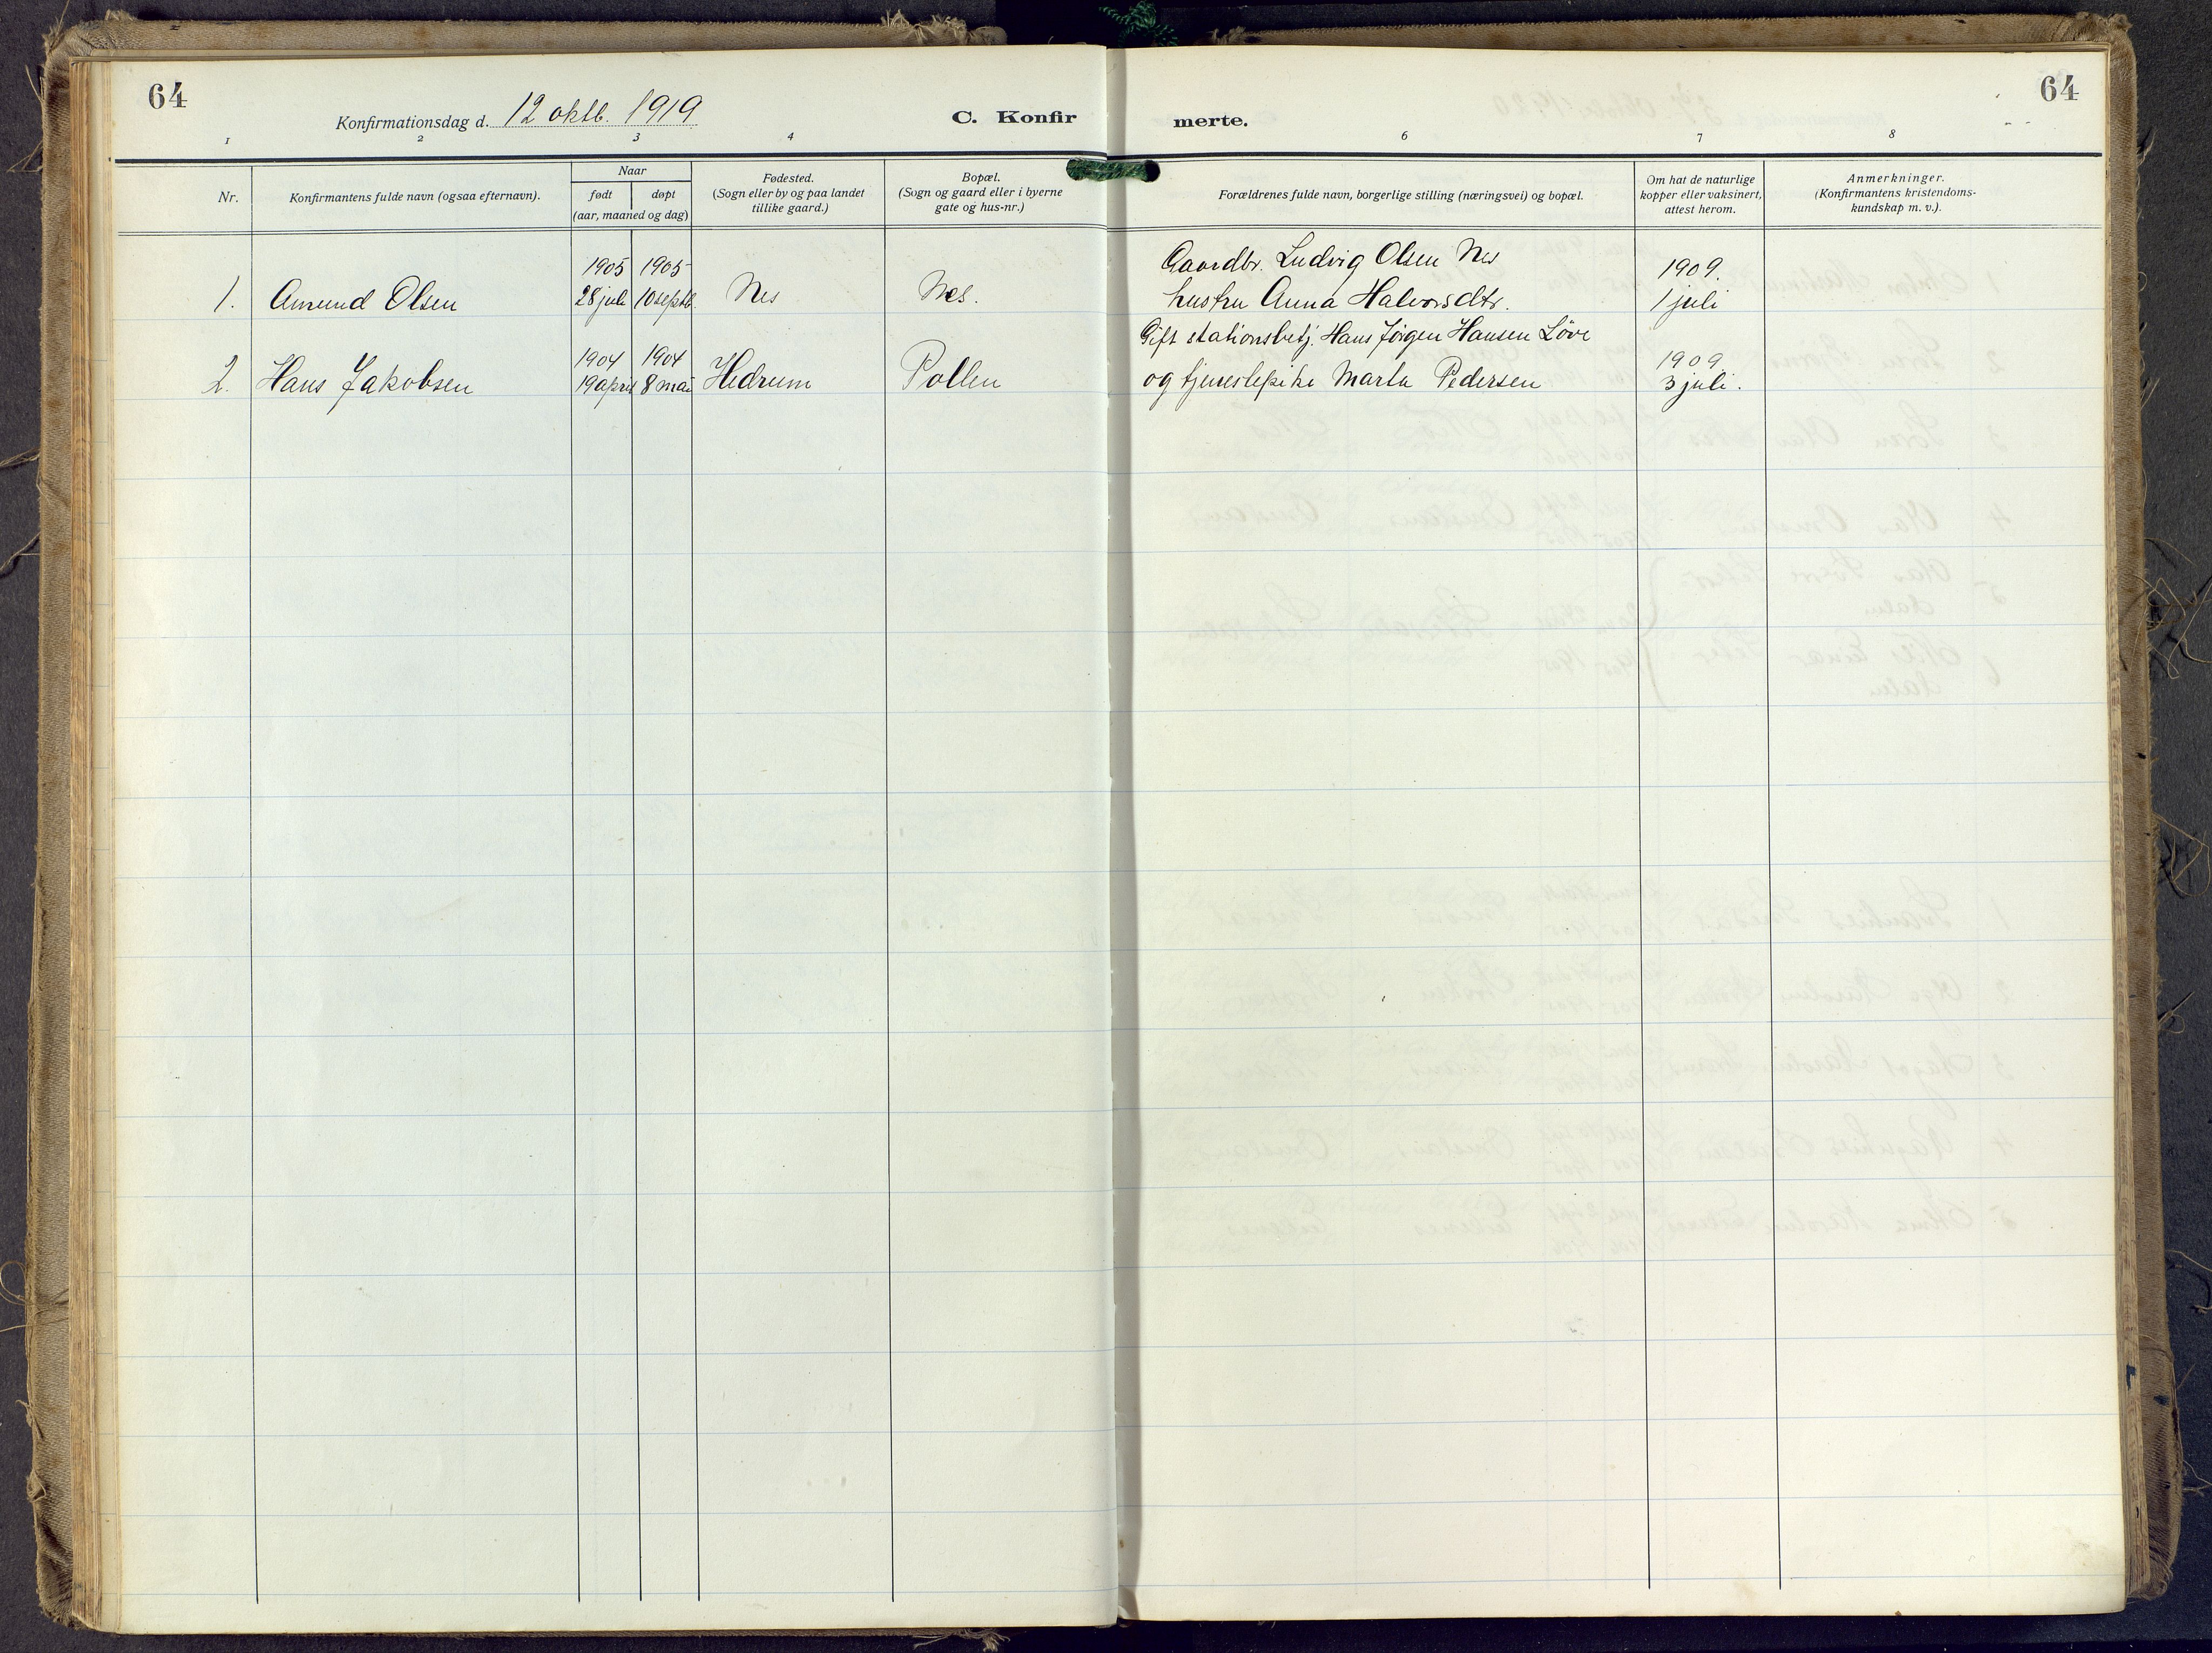 64
Konfirmationsdag d. 12 oktb. 1919
C. Konfirmerte.
64
1 2 3 4 6 7 8
Nr.
Konfirmantens fulde navn (ogsaa efternavn).
Naar
født døpt
(aar, maaned og dag)
Fødested.
(Sogn eller by og paa landet
tillike gaard.)
Bopæl.
(Sogn og gaard eller i byerne
gate og hus-nr.)
Forældrenes fulde navn, borgerlige stilling (næringsvei) og bopæl.
Om hat de naturlige
kopper eller vaksinert,
attest herom.
Anmerkninger.
(Konfirmantens kristendoms-
kundskap m. v.).
1905 1905 Gaardbr. Ludvig Olsen Nes 1909.
1. Amund Olsen 28 juli 10 septb. Nes Nes. hustru Anna Halvorsdtr. 1 juli
Gift stationsbetj. Hans Jørgen Hansen Löve
1904 1904 1909.
2. Hans Jakobsen 19 april 8 mai Hedrum Pollen og tjenestepike Marta Pedersen 3 juli.